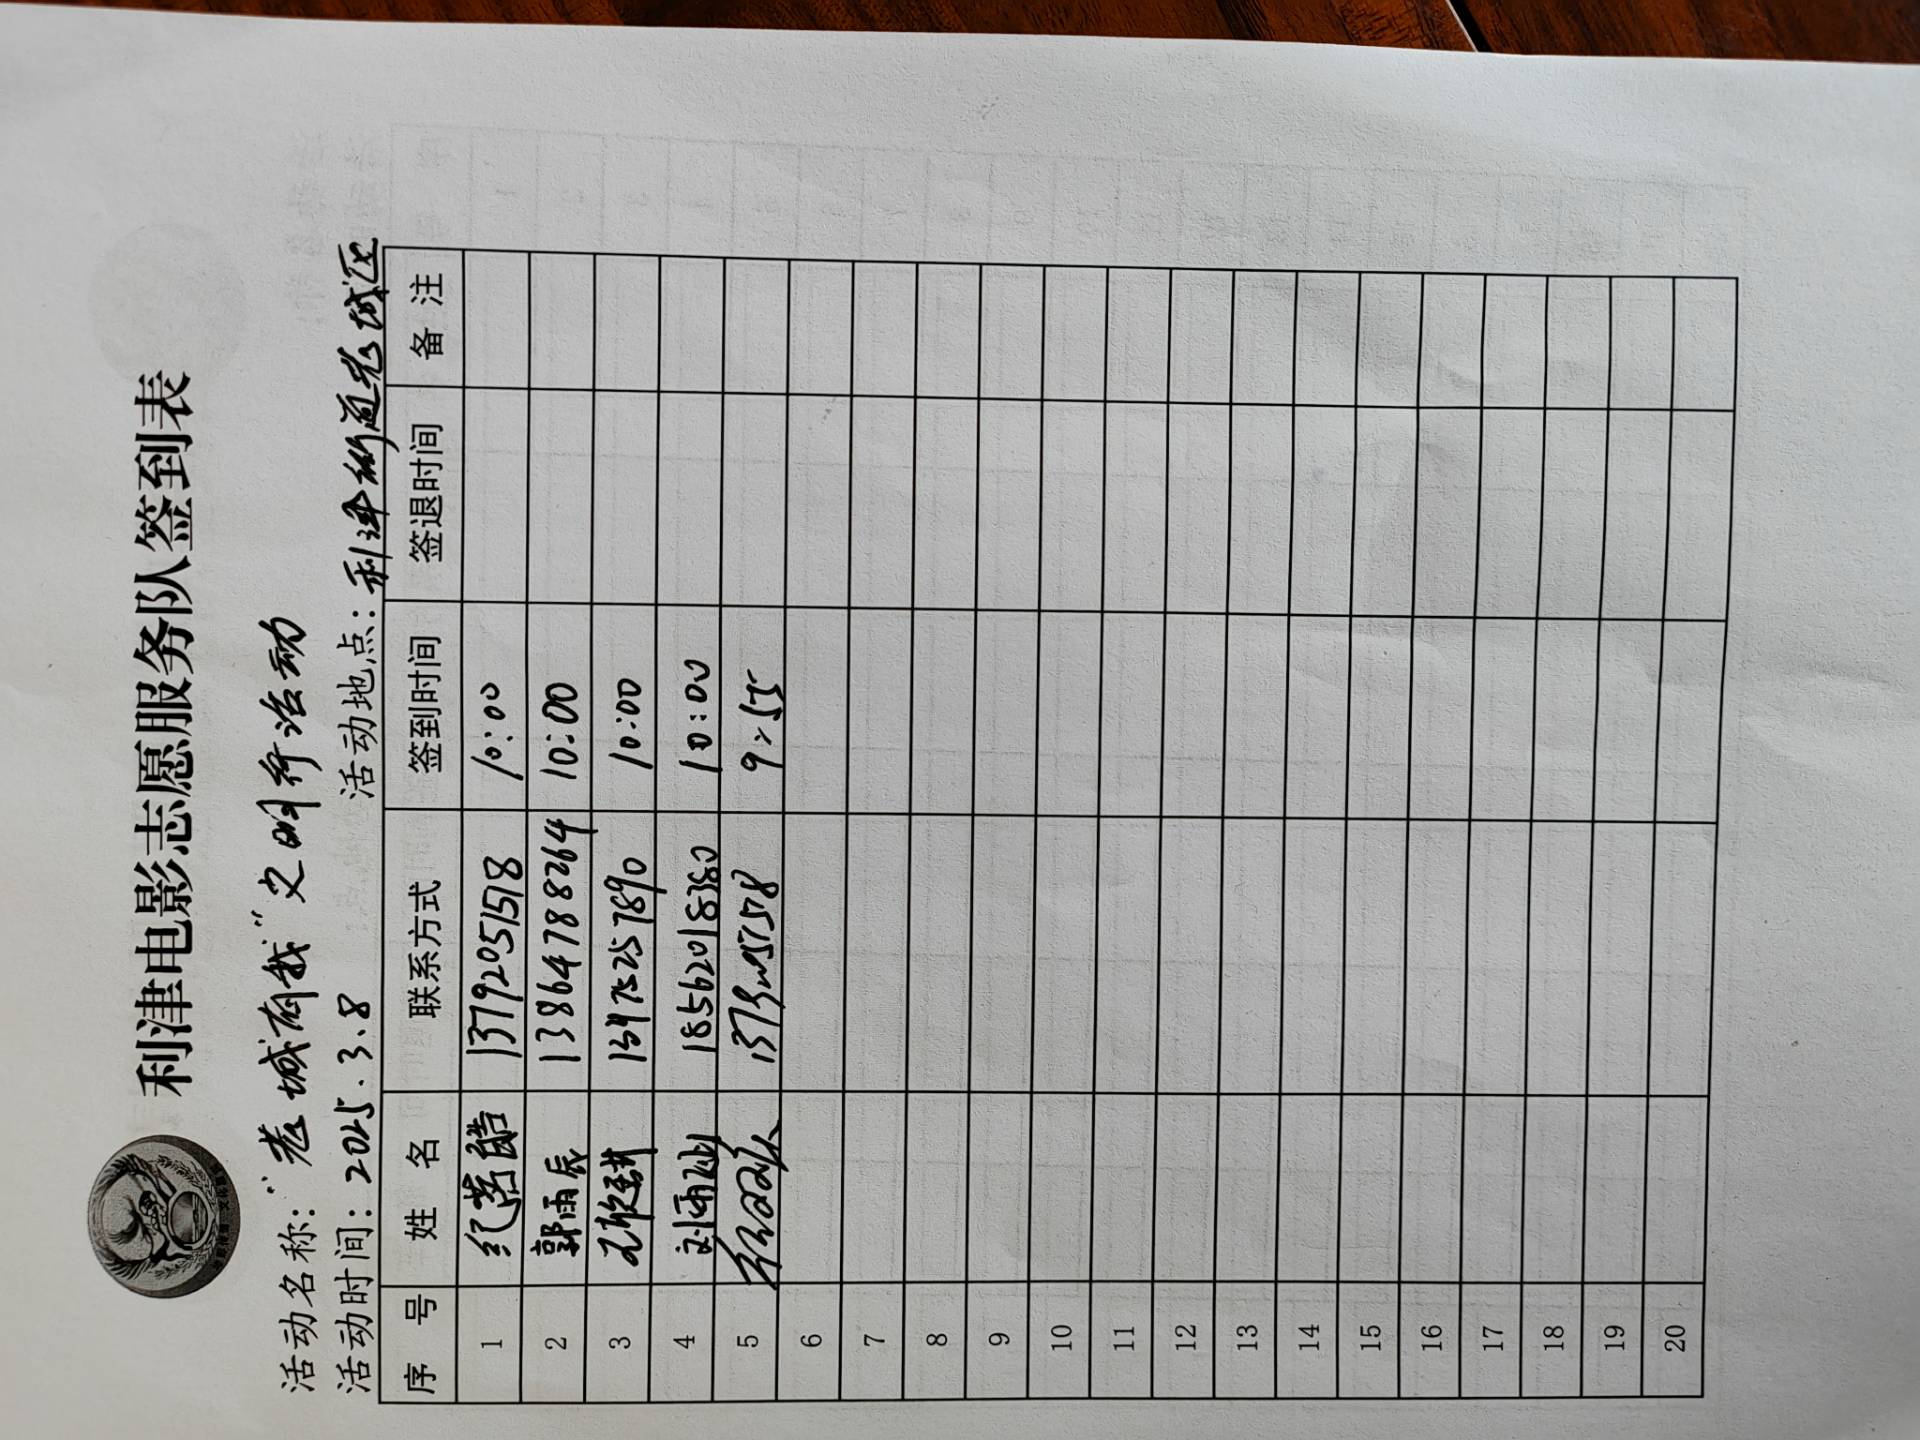 利津电影志愿服务队签到表
活动名称：“老城有我”文明行活动
活动时间：2025.3.8 活动地点：利津街道老城区
序号 姓名 联系方式 签到时间 签退时间 备注
1 13792051518 10:00
2 郭雨辰 13864788264 10:00
3 13475257890 10:00
4 刘雨 18562018380 10:00
5 9:55
6
7
8
9
10
11
12
13
14
15
16
17
18
19
20